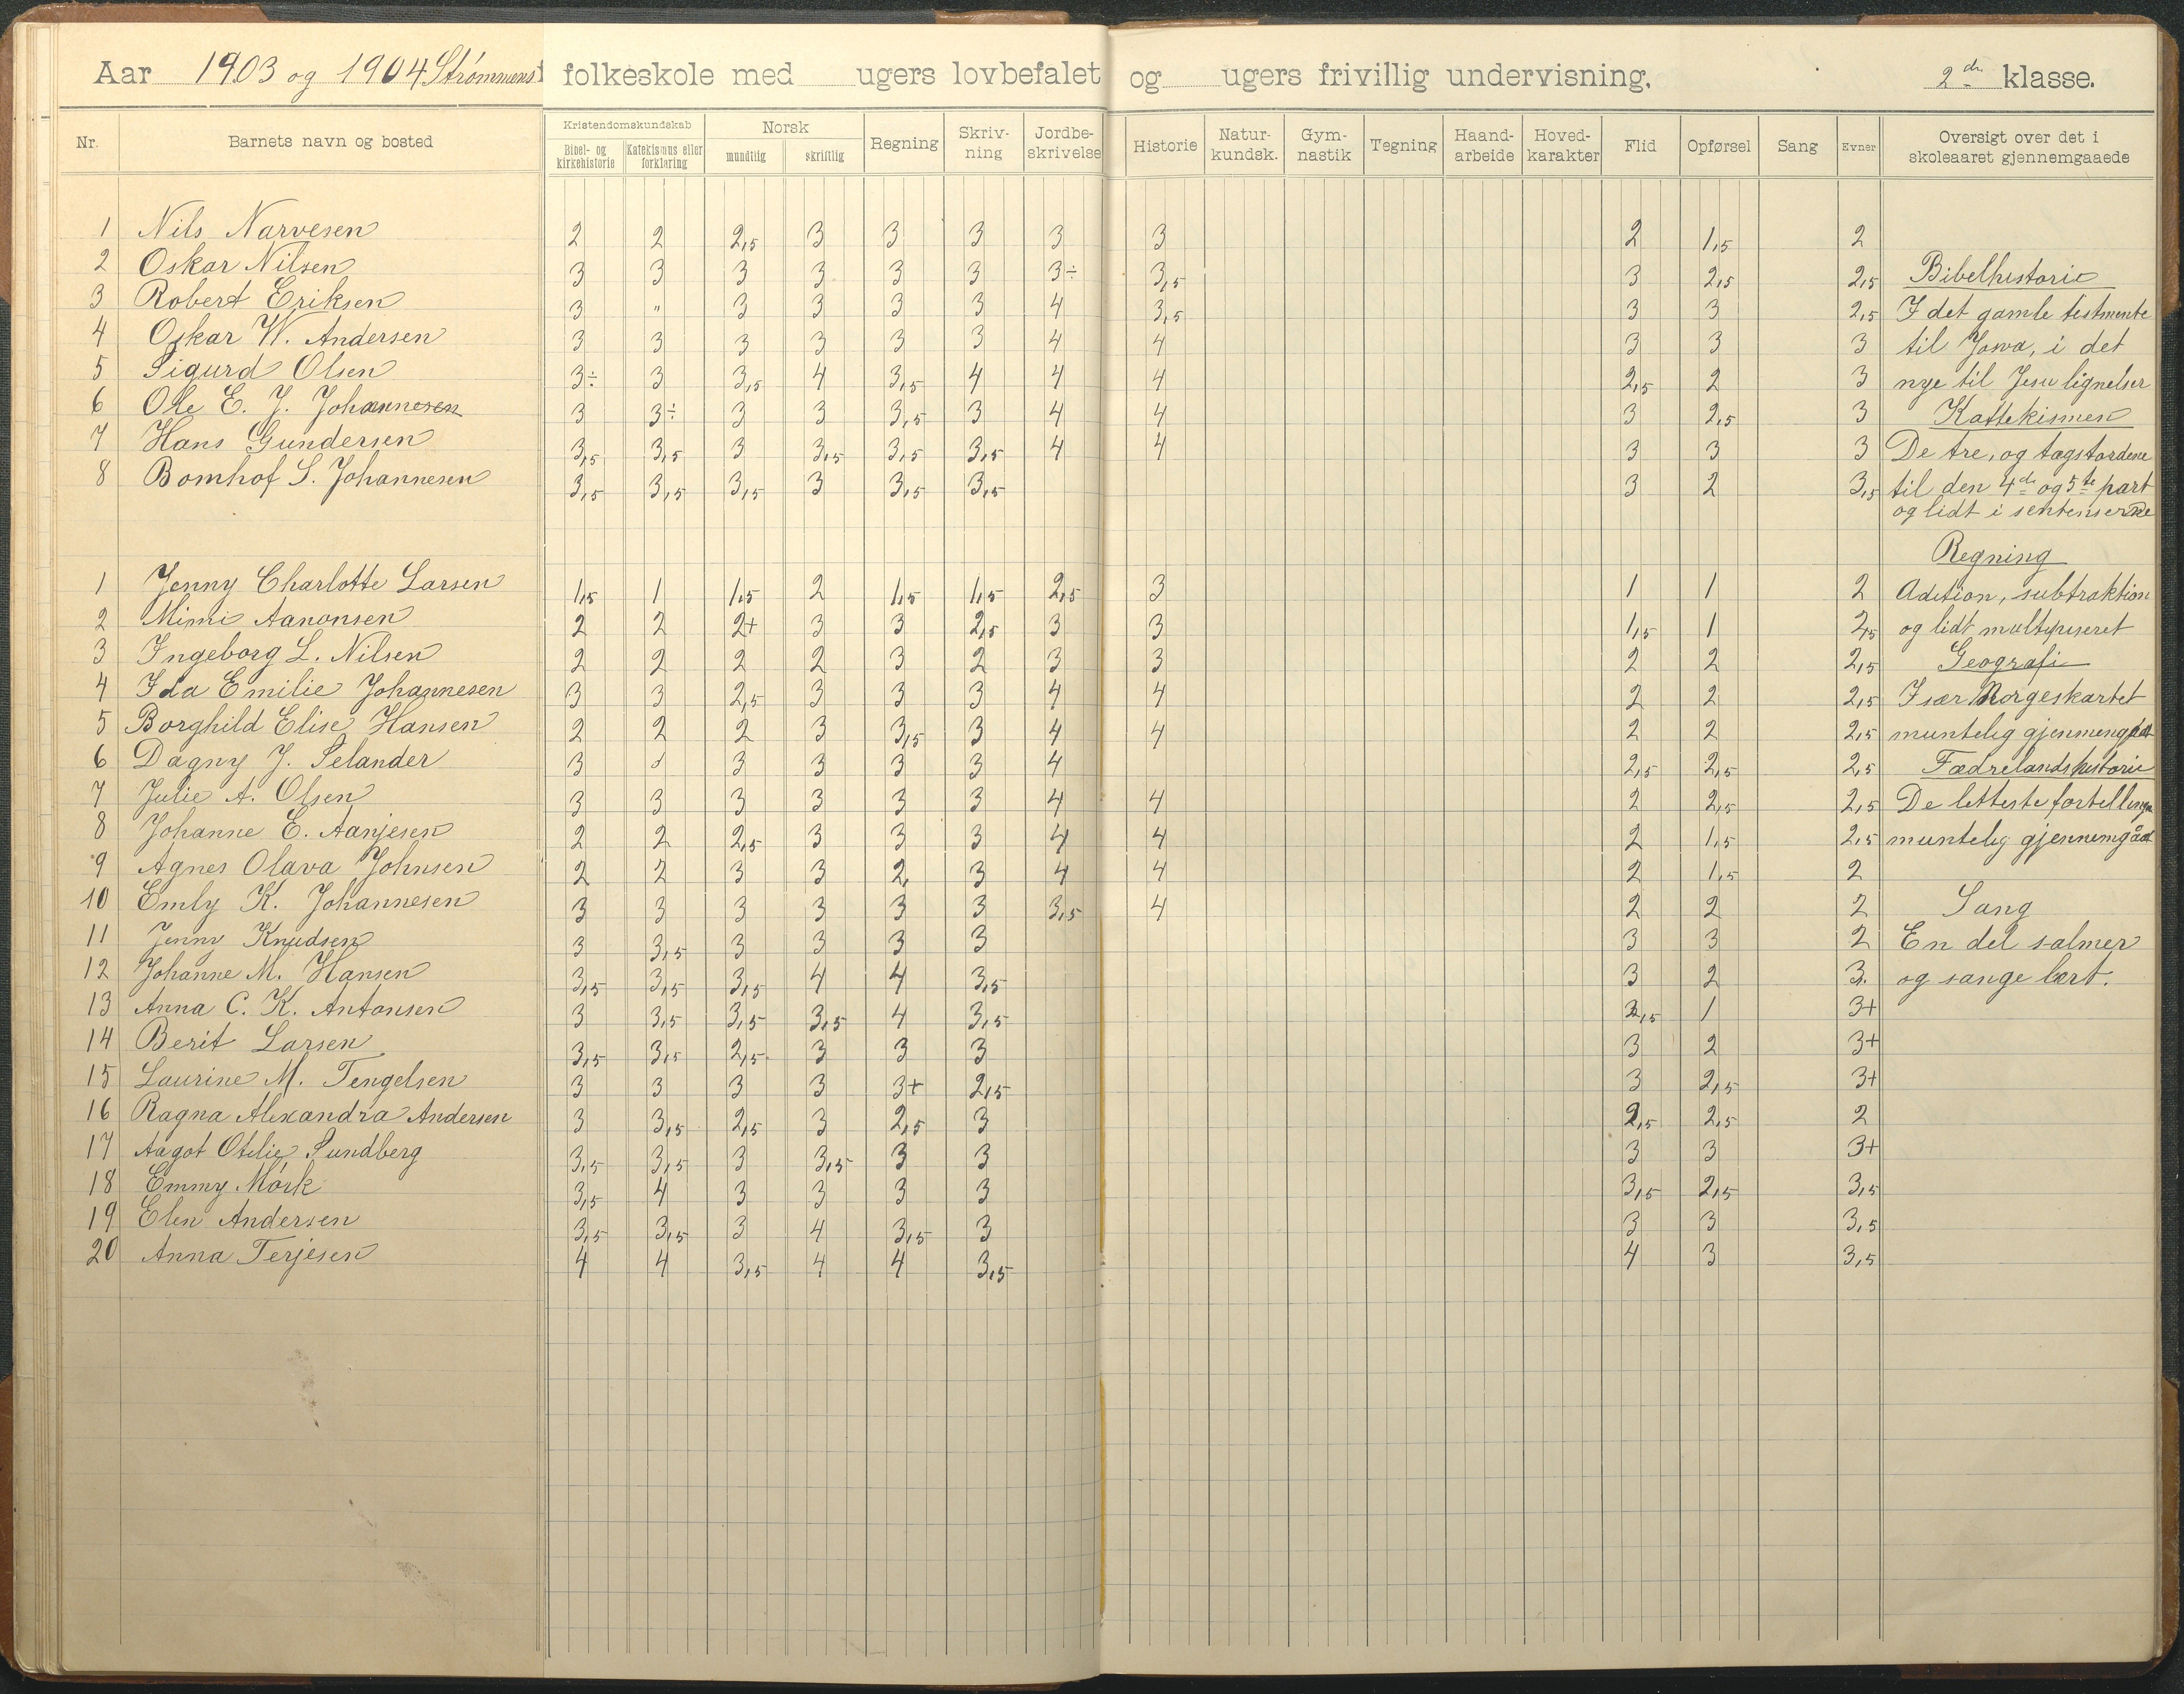 Aar 1903 og 1904 Strømmens folkeskole med ugers lovbefalet og ugers frivillig undervisning, 2den klasse.
Nr. Barnets navn og bosted Kristendomskundskab Norsk Regning Skriv-ning Jordbe-skrivelse Historie Natur-kundsk. Gym-nastik Tegning Haand-arbeide Hoved-karakter Flid Opførsel Sang Evner Oversigt over det i skoleaaret gjennemgaaede
Bibel- og kirkehistorie Katekismus eller forklaring mundtlig skriftlig
1 Nils Narvesen 2 2 2,5 3 3 3 3 3 2 1,5 2
2 Oskar Nilsen 3 3 3 3 3 3 3÷ 3,5 3 2,5 2,5
3 Robert Eriksen 3 " 3 3 3 3 4 3,5 3 3 2,5
4 Oskar W. Andersen 3 3 3 3 3 3 4 4 3 3 3
5 Sigurd Olsen 3÷ 3 3,5 4 3,5 4 4 4 2,5 2 3
6 Ole E. J. Johannesen 3 3÷ 3 3 3,5 3 4 4 3 2,5 3
7 Hans Gundersen 3,5 3,5 3 3,5 3,5 3,5 4 4 3 3 3
8 Bomhof S. Johannesen 3,5 3,5 3,5 3 3,5 3,5 3 2 3,5
1 Jenny Charlotte Larsen 1,5 1 1,5 2 1,5 1,5 2,5 3 1 1 2
2 Mimi Aanonsen 2 2 2+ 3 3 2,5 3 3 1,5 1 2,5
3 Ingeborg L. Nilsen 2 2 2 2 3 2 3 3 2 2 2,5
4 Ida Emilie Johannesen 3 3 2,5 3 3 3 4 4 2 2 2,5
5 Borghild Elise Hansen 2 2 2 3 3,5 3 4 4 2 2 2,5
6 Dagny J. Selander 3 3 3 3 3 4 2,5 2,5 2,5
7 Julie A. Olsen 3 3 3 3 3 3 4 4 2 2,5 2,5
8 Johanne E. Aanjesen 2 2 2,5 3 3 3 4 4 2 1,5 2,5
9 Agnes Olava Johnsen 2 2 3 3 2, 3 4 4 2 1,5 2
10 Emly K. Johannesen 3 3 3 3 3 3 3,5 4 2 2 2
11 Jenny Knudsen 3 3,5 3 3 3 3 3 3 2
12 Johanne M. Hansen 3,5 3,5 3,5 4 4 3,5 3 2 3.
13 Anna C. K. Antonsen 3 3,5 3,5 3,5 4 3,5 2,5 1 3+
14 Berit Larsen 3,5 3,5 2,5 3 3 3 3 2 3+
15 Laurine M. Tengelsen 3 3 3 3 3+ 2,5 3 2,5 3+
16 Ragna Alexandra Andersen 3 3,5 2,5 3 2,5 3 2,5 2,5 2
17 Aagot Otilie Sundberg 3,5 3,5 3 3,5 3 3 3 3 3+
18 Emmy Mørk 3,5 4 3 3 3 3 3,5 2,5 3,5
19 Elen Andersen 3,5 3,5 3 4 3,5 3 3 3 3,5
20 Anna Terjesen 4 4 3,5 4 4 3,5 4 3 3,5
Bibelhistorie
I det gamle testmente
til Josva, i det
nye til Jesu lignelser
Kattekismen
De tre, og tagstordene
til den 4de og 5te part
og lidt i sentenserne
Regning
Adition, subtraktion
og lidt multipliseret
Geografi
Især Norgeskartet
muntelig gjenmengåat
Fædrelandshistorie
De letteste fortellinger
muntelig gjennemgåat
Sang
En del salmer
og sange lært.